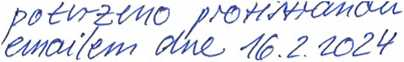 potvrzeno protistranou
emailem dne 16.2.2024